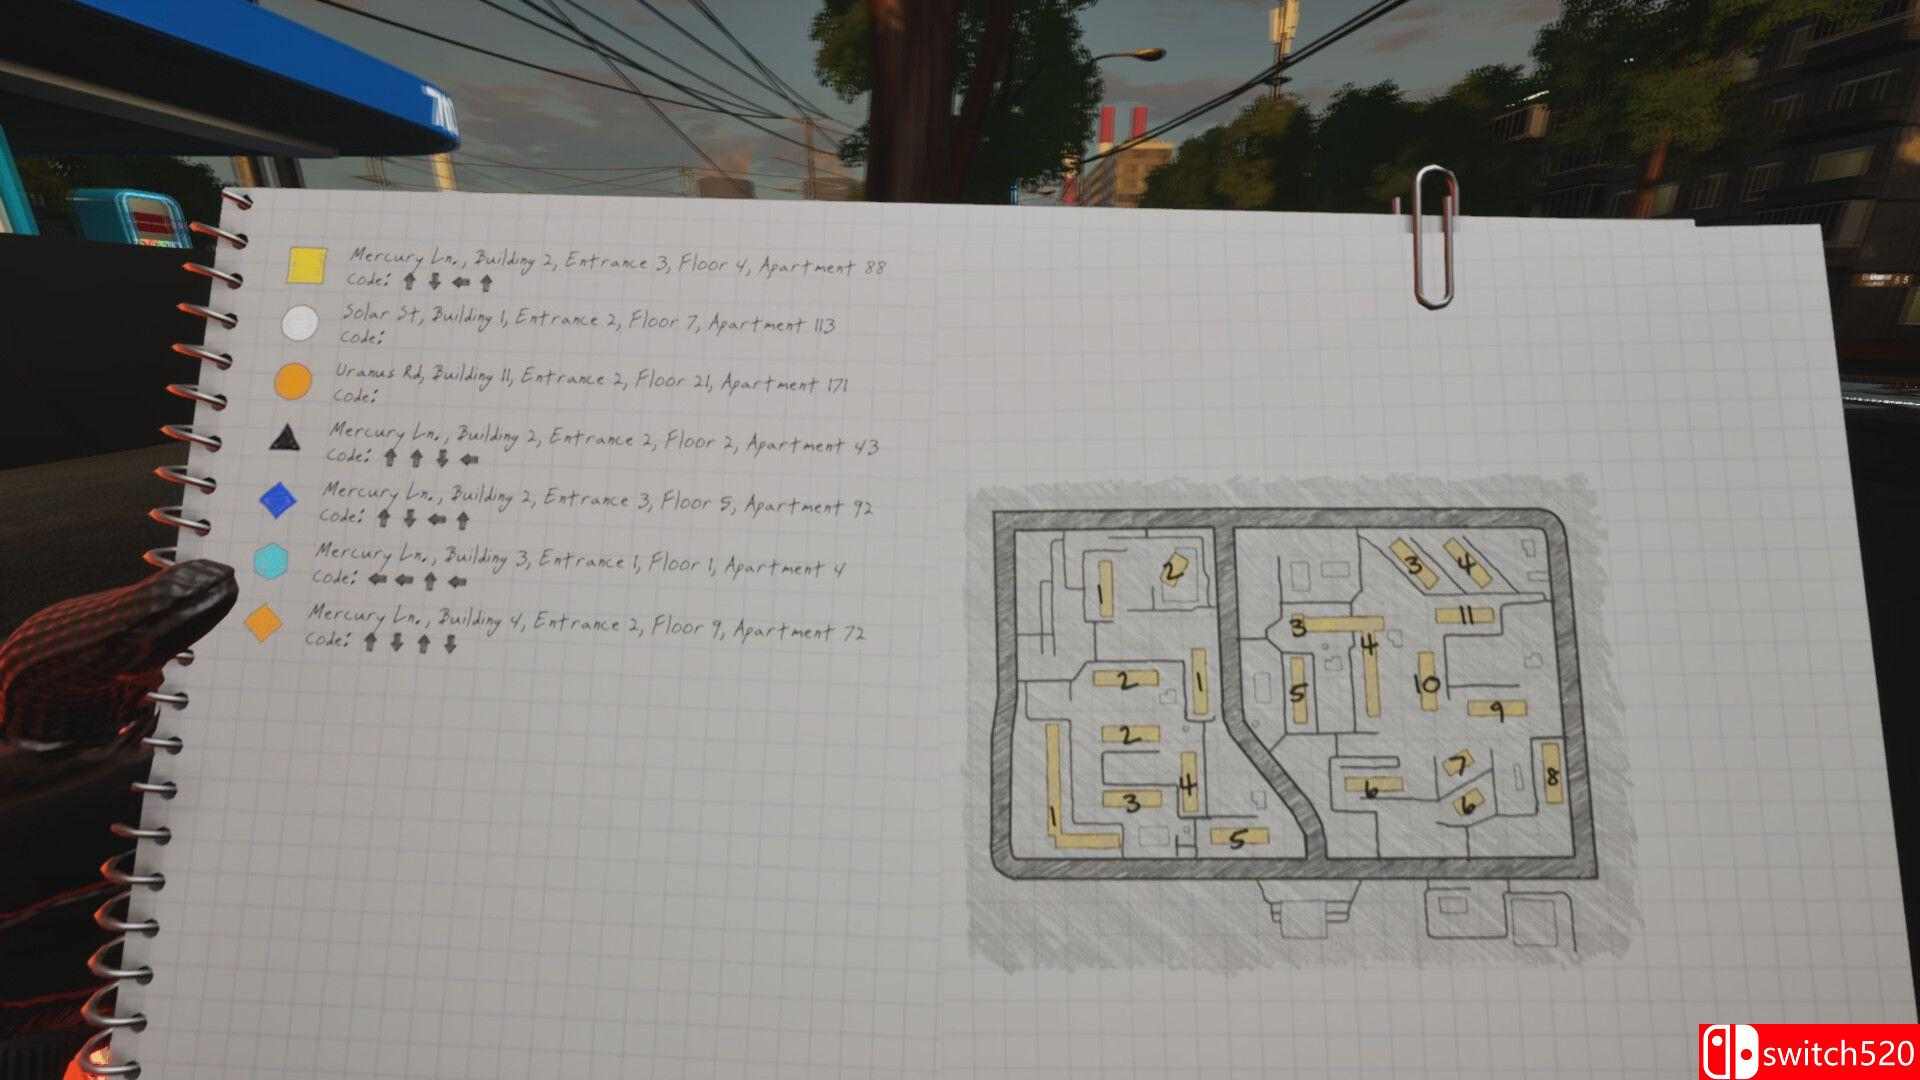 Mercury Ln., Building 2, Entrance 3, Floor 4, Apartment 88
Code: ↑ ↓ ← ↑
Solar St, Building 1, Entrance 2, Floor 7, Apartment 113
Code:
Uranus Rd, Building 11, Entrance 2, Floor 21, Apartment 171
Code:
Mercury Ln., Building 2, Entrance 2, Floor 2, Apartment 43
Code: ↑ ↑ ↓ ←
Mercury Ln., Building 2, Entrance 3, Floor 5, Apartment 92
Code: ↑ ↓ ← ↑
Mercury Ln., Building 3, Entrance 1, Floor 1, Apartment 4
Code: ← ← ↑ ←
Mercury Ln., Building 4, Entrance 2, Floor 9, Apartment 72
Code: ↑ ↓ ↑ ↓
1 2 3 4
3 4 11
2 1 5 10 9
2
1 3 4 6 7 8
5 6
switch520